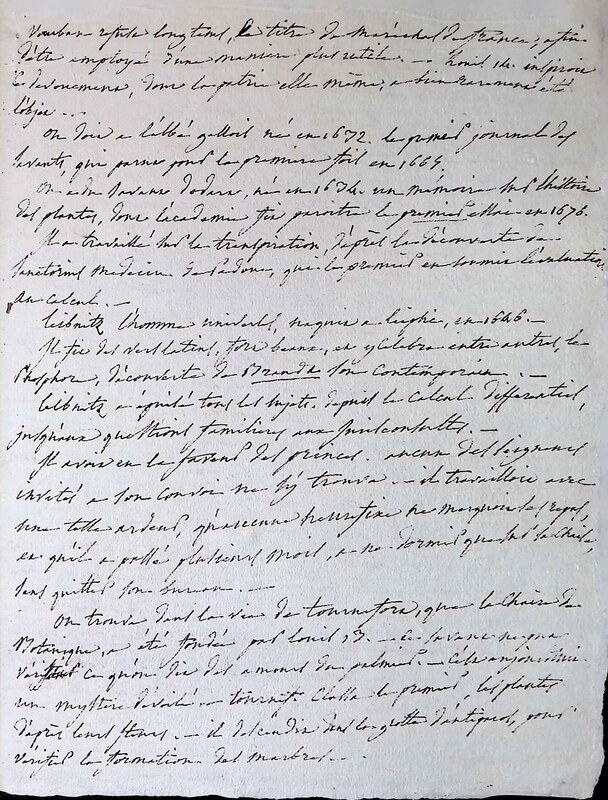 Vauban refusa longtems, le titre de Maréchal de france, afin
d'être employé d'une maniere plus utile. — Louis 14. inspiroit
le devouement, dont la patrie elle même, a bien rarement été
l'objet. —
On doit a l'abbé gallois né en 1632. le premier journal des
savants, qui parut pour la premiere fois en 1665
On a du savant dodart, né en 1634. un mémoire sur l'histoire
des plantes, dont l'académie fit paroitre le premier essai en 1676.
Il a travaillé sur la transpiration, d'après la découverte de
Sanctorius medecin de Padoue, qui le premier en soumit l'évaluation
au calcul. —
leibnitz l'homme universel, naquit a leipsic, en 1646. —
Il fit des vers latins, fort beaux, et y célebra entre autres, le
Phosphore, découverte de Brandt son contemporain. —
leibnitz a épuisé tous les sujets. depuis le calcul differentiel,
jusqu'aux questions familieres aux jurisconsultes. —
Il avoit eu la faveur des princes. aucun des seigneurs
invités a son convoi ne s'y trouva. — il travailloit avec
une telle ardeur, qu'aucune heure fixe ne marquoit ses repas,
et qu'il a passé plusieurs mois, a ne dormir que sur sa chaise,
sans quitter son bureau. —
On trouve dans la vie de tournefort, que la chaire de
Botanique, a été fondée par louis 13. — Ce savant ne put
vérifier ce qu'on dit des amours du palmier. — C'est aujourd'hui
un mystere dévoilé. — tournef. classa le premier, les plantes
d'après leurs fleurs. — il descendit dans la grotte d'antiparos, pour
vérifier la formation des marbres. —